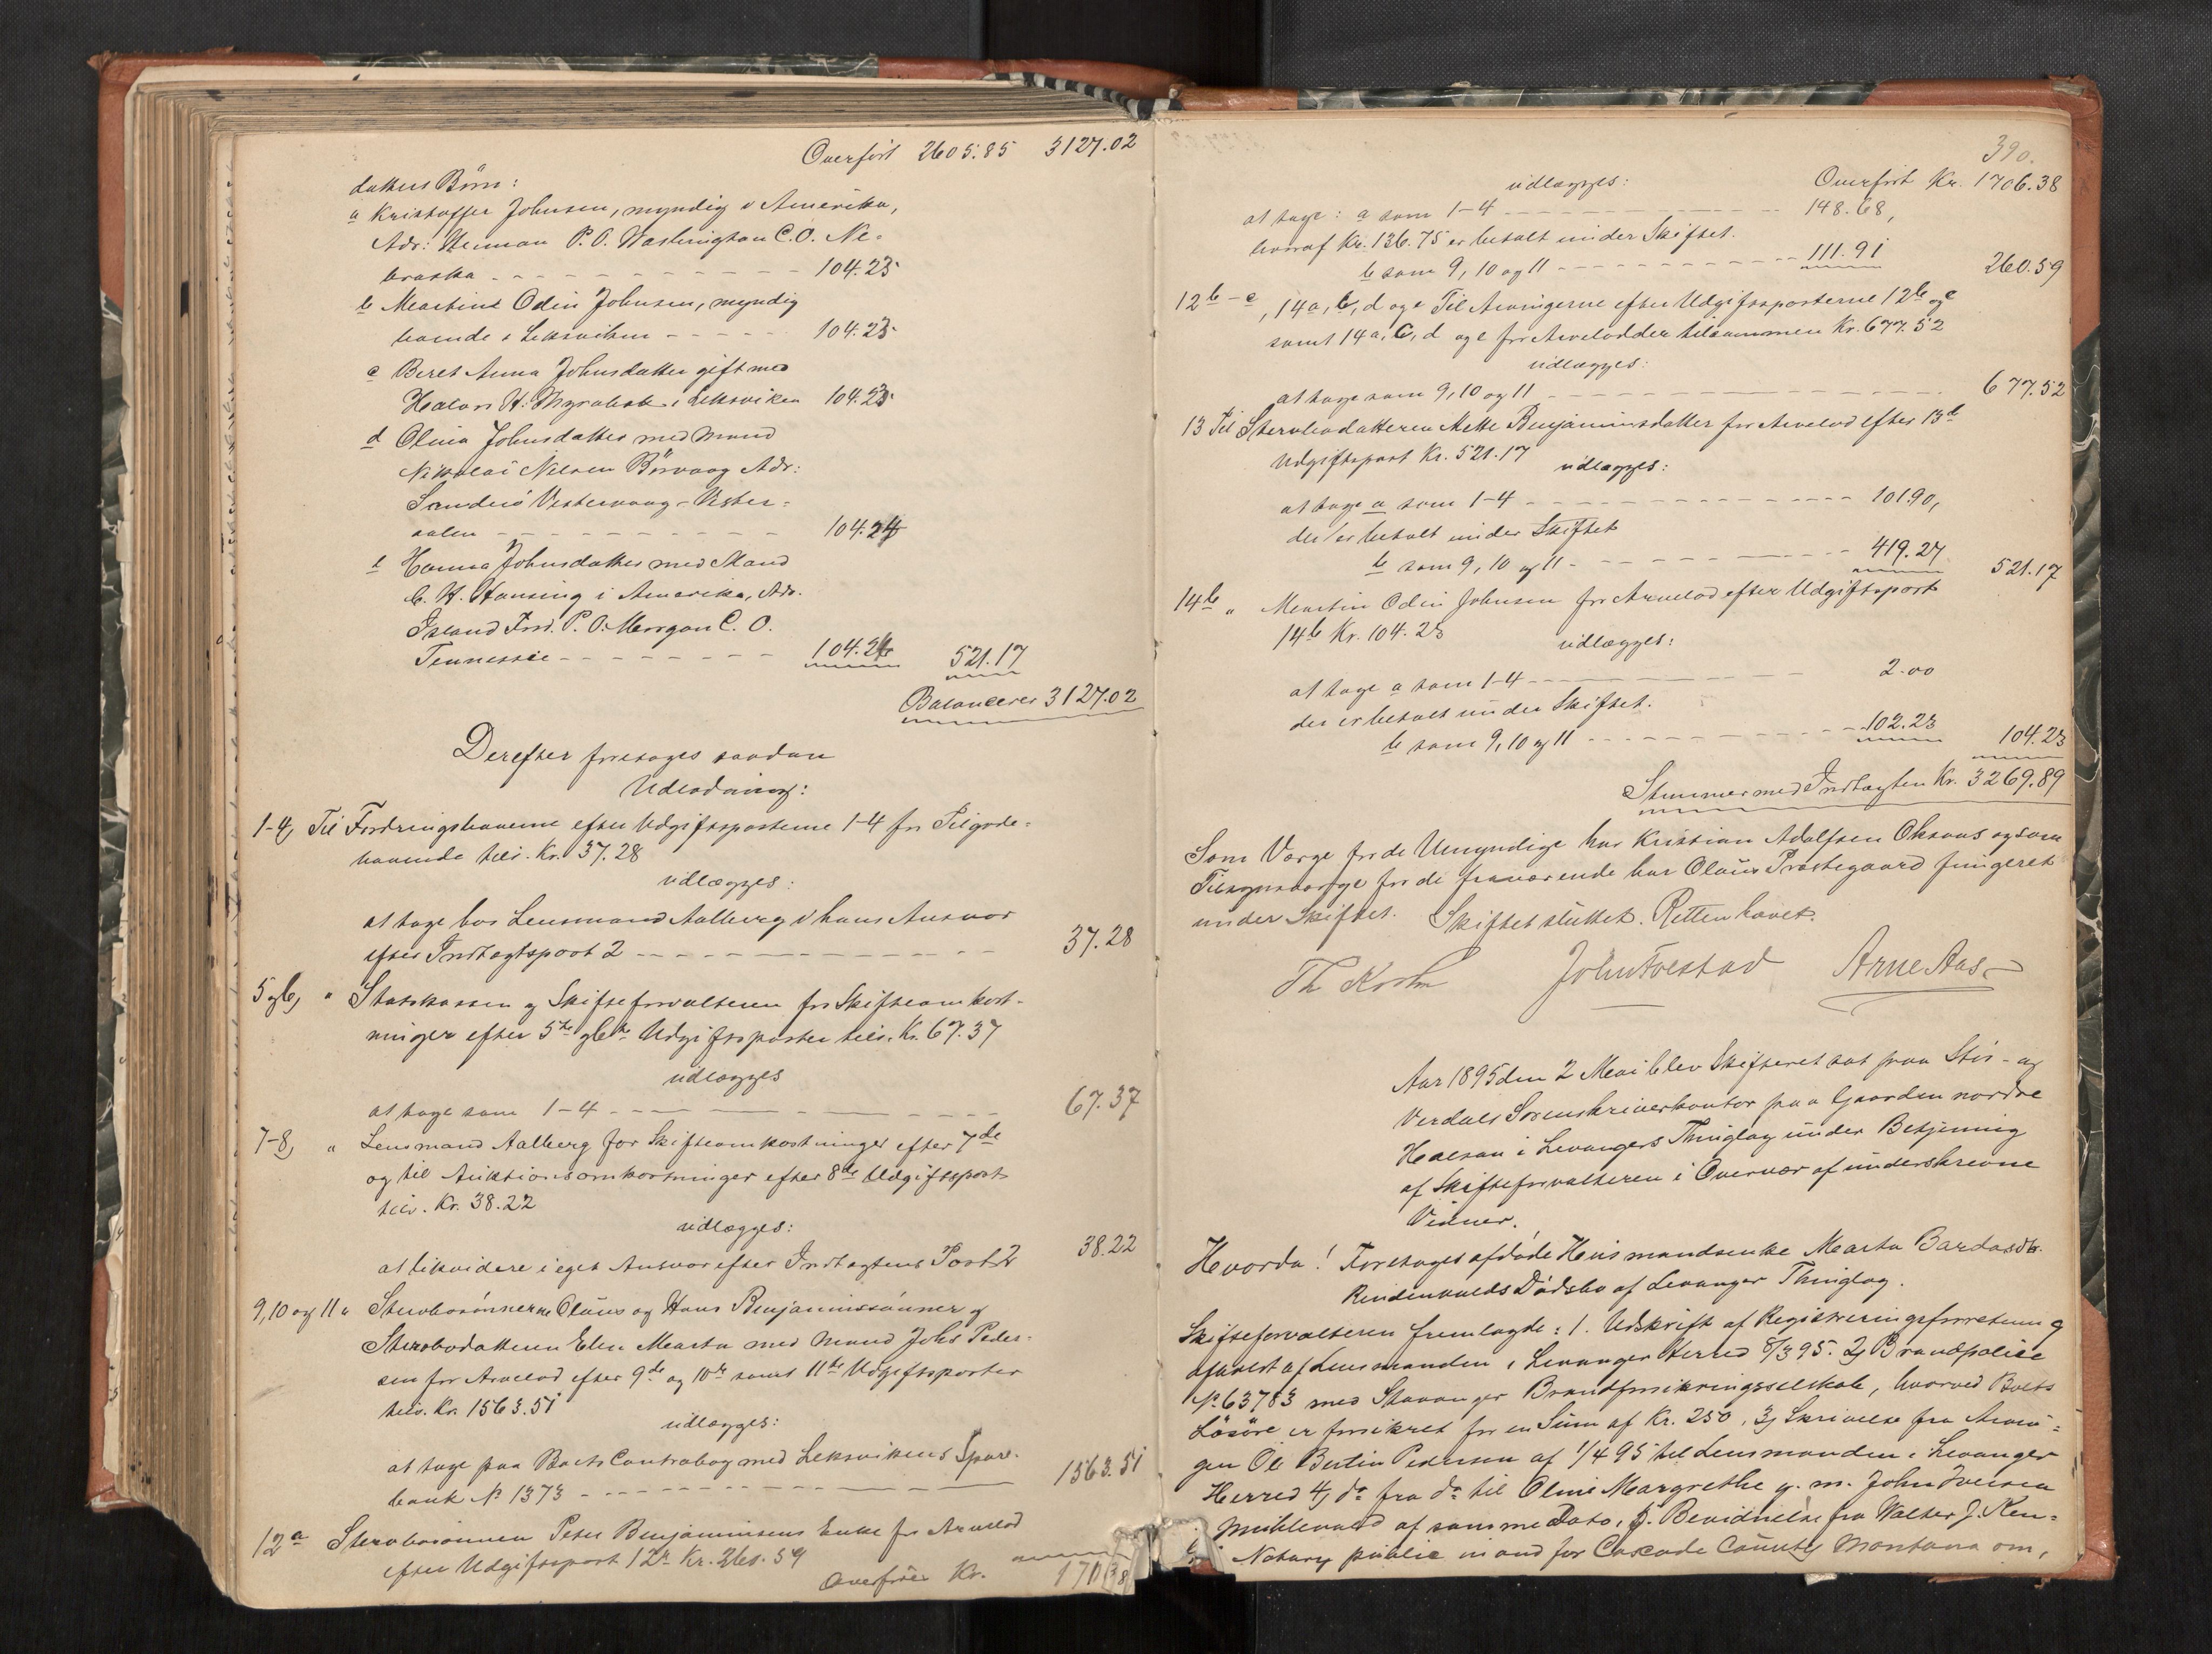 Overført 2605.85 3127.02
datters Børn:
a Kristoffer Johnsen, myndig i Amerika,
Adr: Herman P. O. Washington C.O. Ne-
braska - - - 104.23
b Martin Odin Johnsen, myndig
boende i Leksviken - - - 104.23
c Beret Anna Johnsdatter gift med
Halvor H. Myrabak i Leksviken 104.23
d Olina Johnsdatter med Mand
Nikolai Nilsen Börvaag Adr:
Sandnö Vestervaag - Vester-
aalen - - - 104.24
e Hanna Johnsdatter med Mand
C. H. Hansing i Amerika, Adr.
Island Ford. P. O. Morgan C. O.
Tennessee - - - 104.24 521.17
Balancerer 3127.02
Derefter foretoges saadan
Udlodning:
1-4, Til Fordringshaverne efter Udgiftsposterne 1-4 for Tilgode-
havende tils. Kr. 37.28
udlægges:
at tage hos Lensmand Aalberg i hans Ansvar
efter Indtægtspost 2 - - - 37.28
5 og 6, " Statskassen og Skifteforvalteren for Skifteomkost-
ninger efter 5te og 6te Udgiftsposter tils. Kr. 67.37
udlægges
at tage som 1-4 - - - 67.37
7-8, " Lensmand Aalberg for Skifteomkostninger efter 7de
og til Auktionsomkostninger efter 8de Udgiftspost
tils. Kr. 38.22
udlægges:
at likvidere i eget Ansvar efter Indtægtens Post 2 38.22
9, 10 og 11 " Stervbosønnerne Olaus og Hans Benjaminssønner og
Stervbodatteren Elen Marta med Mand Johs Peder-
sen for Arvelod efter 9de og 10de samt 11te Udgiftsposter
tils. Kr. 1563.51
udlægges:
at tage paa Boets Contrabog med Leksvikens Spare-
bank No 1373 - - - 1563.51
12a Stervbosønnen Peter Benjaminsens Enke for Arvelod
efter Udgiftspost 12a Kr. 260.59
Overføres Kr. 1706.38
390.
udlægges: Overført Kr. 1706.38
at tage: a som 1-4 - - - 148.68,
hvoraf Kr. 136.75 er betalt under Skiftet.
b som 9, 10 og 11 - - - 111.91 260.59
12b-e, 14a, c, d og e Til Arvingerne efter Udgiftsposterne 12b og e
samt 14a, c, d og e for Arvelodder tilsammen Kr. 677.52
udlægges:
at tage som 9, 10 og 11 - - - 677.52
13 Til Stervbodatteren Mette Benjaminsdatter for Arvelod efter 13de
Udgiftspost Kr. 521.17 udlægges:
at tage a som 1-4 - - - 101.90,
der er betalt under Skiftet
b som 9, 10 og 11 - - - 419.27 521.17
14b " Martin Odin Johnsen for Arvelod efter Udgiftspost
14b Kr. 104.23 udlægges:
at tage a som 1-4 - - - 2.00
der er betalt under Skiftet.
b som 9, 10 og 11 - - - 102.23 104.23
Stemmer med Indtægten Kr. 3269.89
Som Værge for de Umyndige har Kristian Adolfsen Oksvos og som
Tilsynsværge for de fraværende har Olaus Præstegaard fungeret
under Skiftet. Skiftet sluttet. Retten hævet.
John Foestad Arne Aas
Aar 1895 den 2 Mai blev Skifteret sat paa Stør- og
Verdals Sorenskriverkontor paa Gaarden nordre
Halsan i Levangers Thinglag under Betjening
af Skifteforvalteren i Overvær af underskrevne
Vidner.
Hvorda! Foretoges afdøde Husmandsenke Marta Bardosdtr.
Rindenvalds Dødsbo af Levanger Thinglag.
Skifteforvalteren fremlagde: 1. Udskrift af Registreringsforretning
afholdt af Lensmanden i Levanger Herred 8/3 95. 2) Brandpolice
No 63783 med Stavanger Brandforsikringsselskab, hvorved Boets
Løsøre er forsikret for en Sum af Kr. 250, 3) Skrivelse fra Arvin-
gen Ole Bertin Pedersen af 1/4 95 til Lensmanden i Levanger
Herred 4) do fra do til Oline Margrethe g. m. John Iversen
Mühlevold af samme Dato, 5. Bevidnelse fra Walter J. Ken-
Notary public in and for Cascade County Montana om,